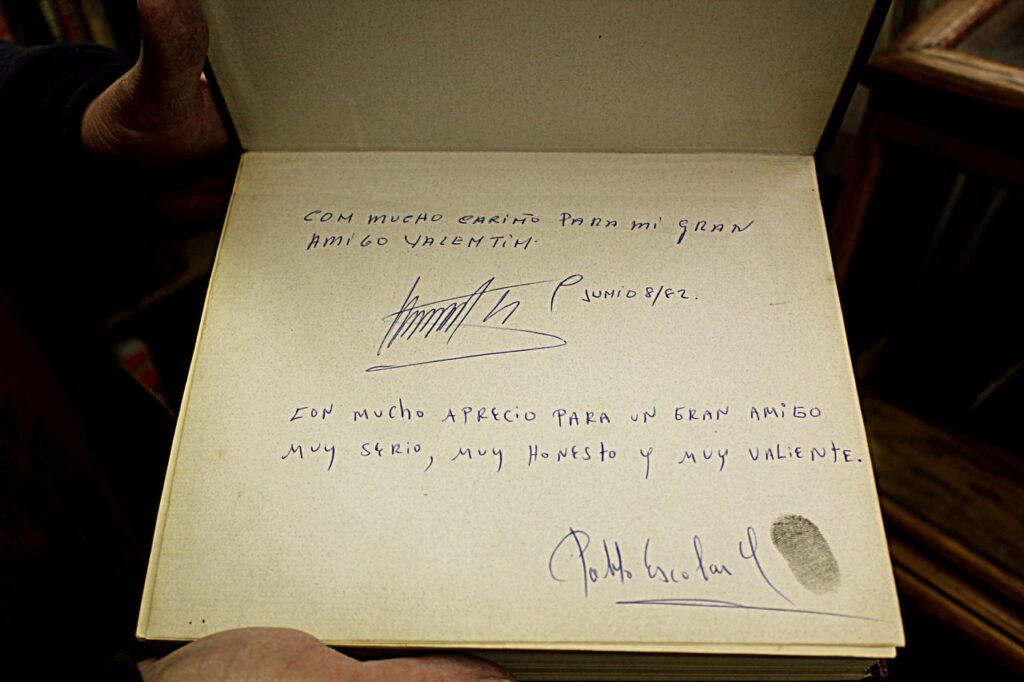 COM MUCHO CARIMÕ PARA MI GRAN
AMIGO VALEMTIM.
JUMIO 8/82.
CON MUCHO APRECIO PARA UN GRAN AMIGO
MUY SERIO, MUY HONESTO Y MUY VALIENTE.
Pablo Escobar G